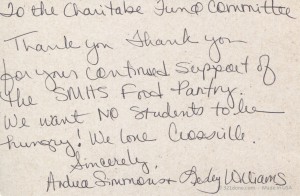 To the Charitabe Fund Committee
Thank you Thank you
for your continued support of
the SMHS Food Pantry.
We want NO Students to be
hungry! We love Crossville.
Sincerely,
Andrea Simmons & Williams